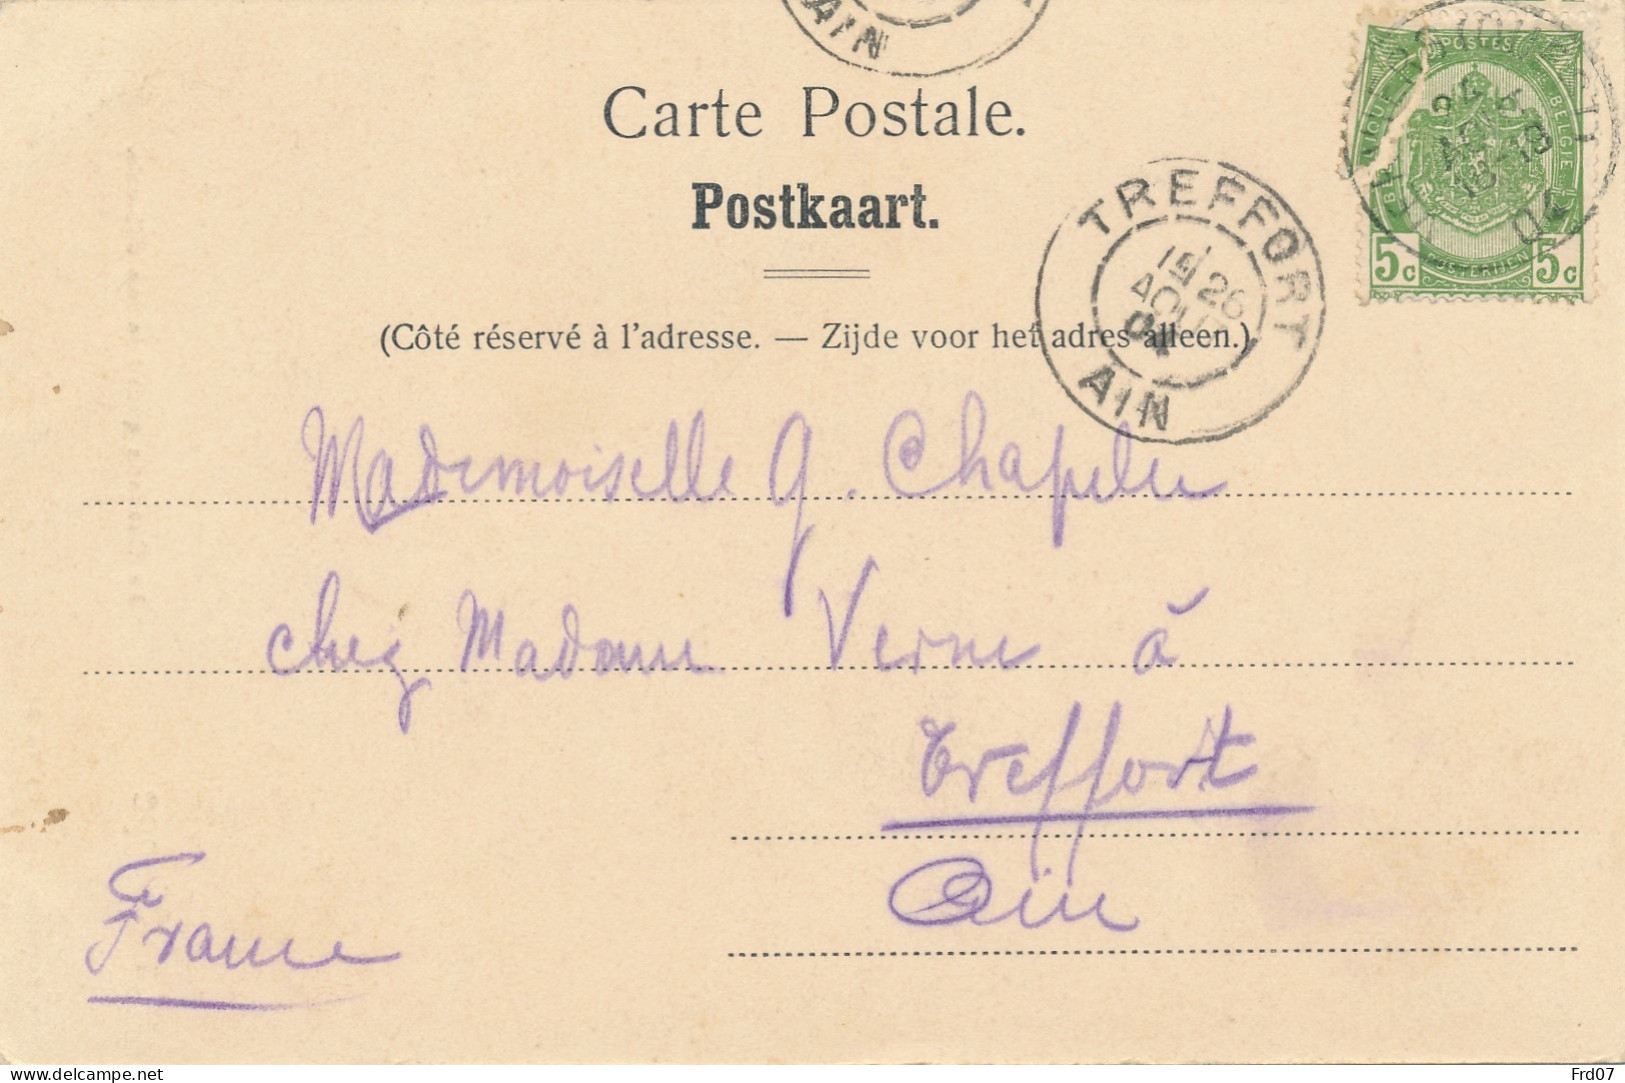 AIN
Carte Postale.
Postkaart.
(Côté réservé à l'adresse. — Zijde voor het adres alleen.)
TREFFORT
26
AOUT
04
AIN
POSTES
BELGIQUE BELGIE
POSTERIJEN
5c 5c
04
Mademoiselle G. Chapelu
chez Madame Verne à
Treffort
Ain
France
delcampe.net
Frd07